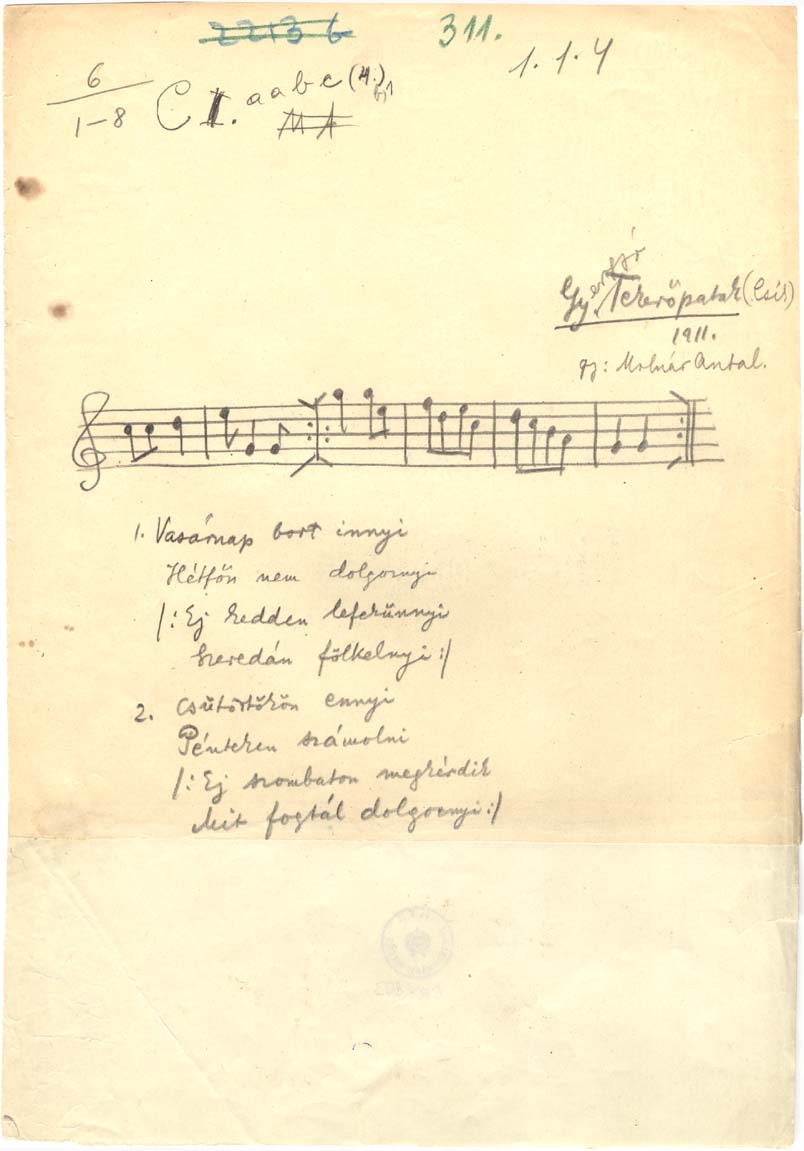 2213 b
311.
1.1.4
6
1-8
C I. a a b c (4.) b)1
Gyergyó
Tekerőpatak (Csík)
1911.
gy: Molnár Antal.
1. Vasárnap bort innyi
Hétfőn nem dolgoznyi
/: Ej kedden lefekünnyi
Szeredán fölkelnyi :/
2. Csütörtökön ennyi
Pénteken számolni
/: Ej szombaton megkérdik
Mit fogtál dolgoznyi :/